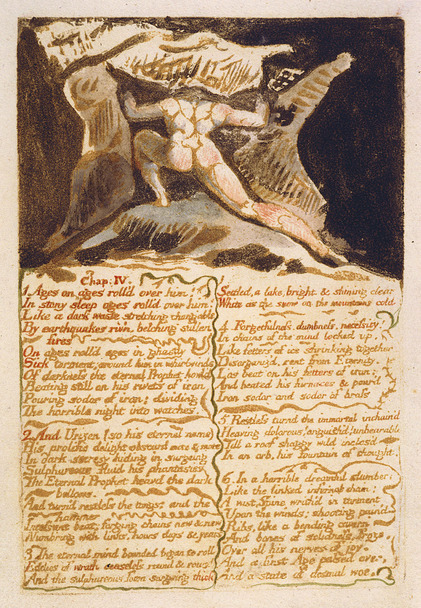 Chap: IV.
1. Ages on ages roll'd over him!
In stony sleep ages roll'd over him!
Like a dark waste stretching chang'able
By earthquakes riv'n, belching sullen
fires
On ages roll'd ages in ghastly
Sick torment; around him in whirlwinds
Of darkness the eternal Prophet howl'd
Beating still on his rivets of iron
Pouring sodor of iron; dividing
The horrible night into watches.
2. And Urizen (so his eternal name)
His prolific delight obscurd more & more
In dark secresy hiding in surgeing
Sulphureous fluid his phantasies.
The Eternal Prophet heavd the dark
bellows,
And turnd restless the tongs; and the
hammer
Incessant beat; forging chains new & new
Numb'ring with links, hours, days & years
3. The eternal mind bounded began to roll
Eddies of wrath ceaseless round & round,
And the sulphureous foam surgeing thick
Settled, a lake, bright, & shining clear:
White as the snow on the mountains cold.
4. Forgetfulness, dumbness, necessity!
In chains of the mind locked up,
Like fetters of ice shrinking together
Disorganiz'd, rent from Eternity,
Los beat on his fetters of iron;
And heated his furnaces & pour'd
Iron sodor and sodor of brass
5. Restless turnd the immortal inchain'd
Heaving dolorous, anguish'd, unbearable
Till a roof shaggy wild inclos'd
In an orb, his fountain of thought.
6. In a horrible dreamful slumber;
Like the linked infernal chain;
A vast Spine writh'd in torment
Upon the winds; shooting pain'd
Ribs, like a bending cavern
And bones of solidness, froze
Over all his nerves of joy.
And a first Age passed over,
And a state of dismal woe.